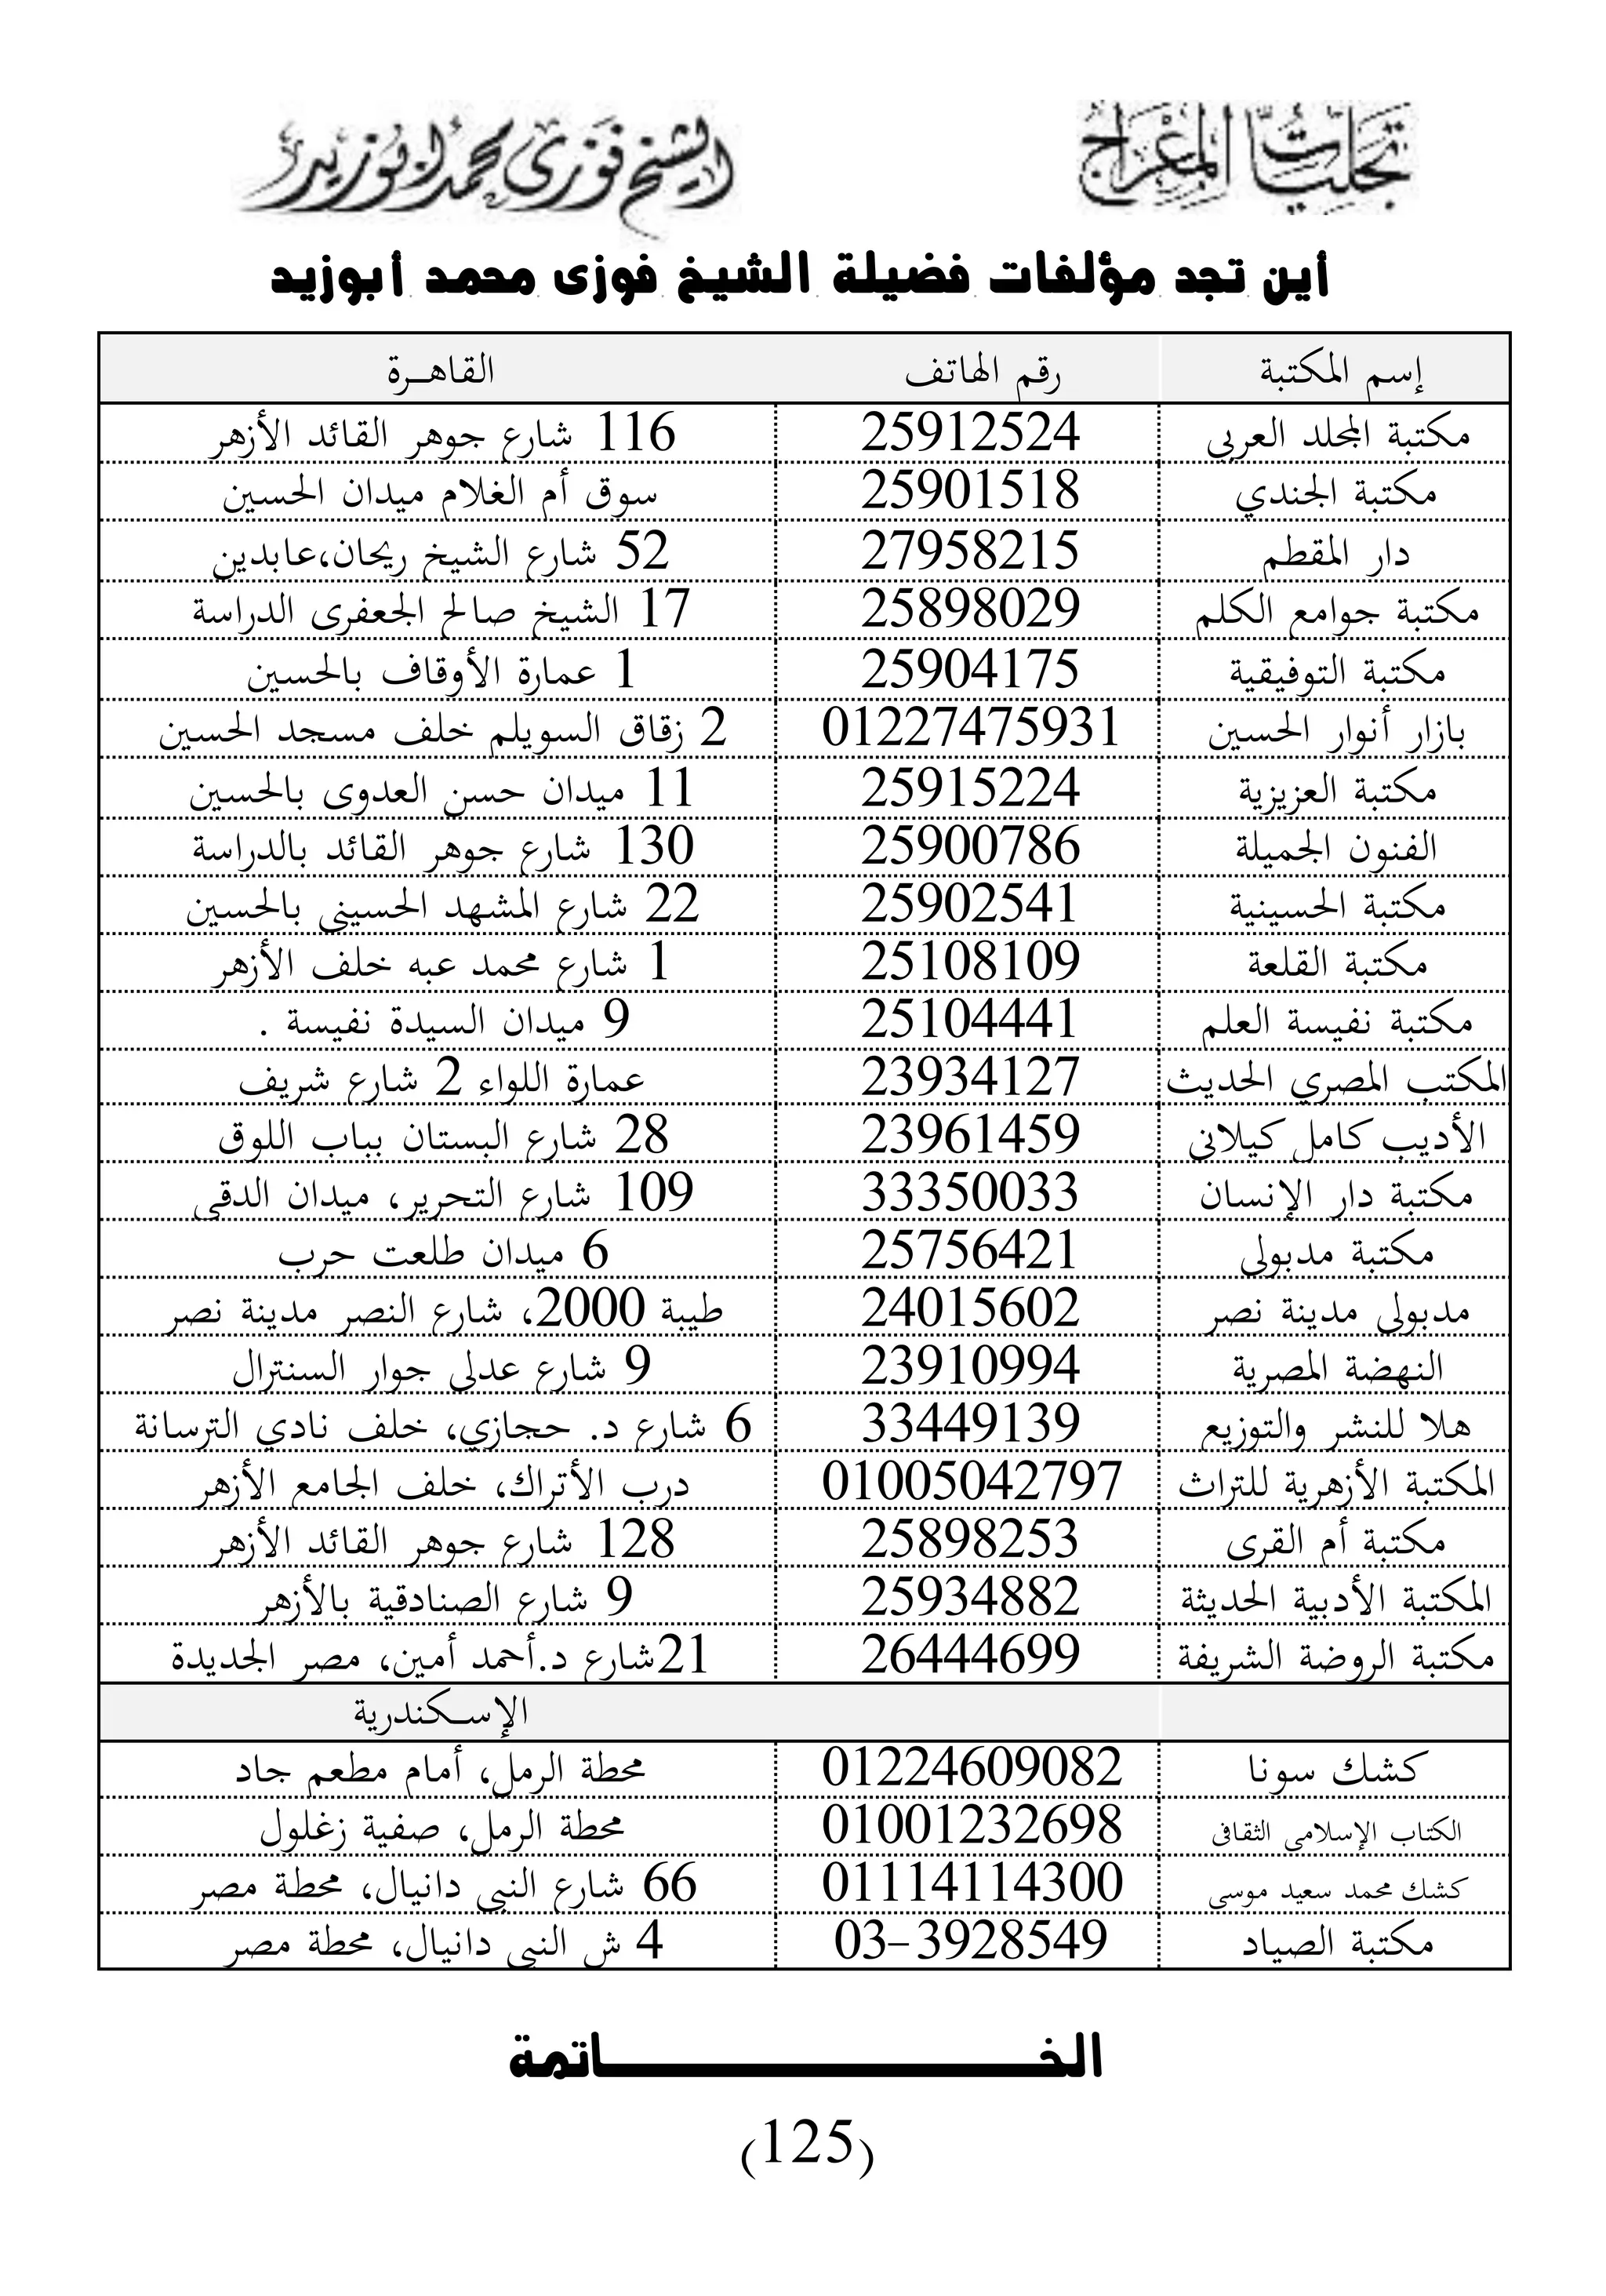 تجليات المعراج الشيخ فوزى محمد أبوزيد
أين تجد مؤلفات فضيلة الشيخ فوزى محمد أبوزيد
إسم المكتبة رقم الهاتف القاهـرة
مكتبة المجلد العربى 25912524 116 شارع جوهر القائد الأزهر
مكتبة الجندي 25901518 سوق أم الغلام ميدان الحسين
دار المقطم 27958215 52 شارع الشيخ ريحان،عابدين
مكتبة جوامع الكلم 25898029 17 الشيخ صالح الجعفرى الدراسة
مكتبة التوفيقية 25904175 1 عمارة الأوقاف بالحسين
بازار أنوار الحسين 01227475931 2 زقاق السويلم خلف مسجد الحسين
مكتبة العزيزية 25915224 11 ميدان حسن العدوى بالحسين
الفنون الجميلة 25900786 130 شارع جوهر القائد بالدراسة
مكتبة الحسينية 25902541 22 شارع المشهد الحسينى بالحسين
مكتبة القلعة 25108109 1 شارع محمد عبه خلف الأزهر
مكتبة نفيسة العلم 25104441 9 ميدان السيدة نفيسة .
المكتب المصري الحديث 23934127 عمارة اللواء 2 شارع شريف
الأديب كامل كيلانى 23961459 28 شارع البستان بباب اللوق
مكتبة دار الإنسان 33350033 109 شارع التحرير، ميدان الدقى
مكتبة مدبولى 25756421 6 ميدان طلعت حرب
مدبولى مدينة نصر 24015602 طيبة 2000، شارع النصر مدينة نصر
النهضة المصرية 23910994 9 شارع عدلى جوار السنترال
هلا للنشر والتوزيع 33449139 6 شارع د. حجازي، خلف نادي الترسانة
المكتبة الأزهرية للتراث 01005042797 درب الأتراك، خلف الجامع الأزهر
مكتبة أم القرى 25898253 128 شارع جوهر القائد الأزهر
المكتبة الأدبية الحديثة 25934882 9 شارع الصنادقية بالأزهر
مكتبة الروضة الشريفة 26444699 21شارع د.أحمد أمين، مصر الجديدة
الإسـكندرية
كشك سونا 01224609082 محطة الرمل، أمام مطعم جاد
الكتاب الإسلامى الثقافى 01001232698 محطة الرمل، صفية زغلول
كشك محمد سعيد موسى 01114114300 66 شارع النبى دانيال، محطة مصر
مكتبة الصياد 03-3928549 4 ش النبى دانيال، محطة مصر
الخـــــــــــــــاتمة
(125)